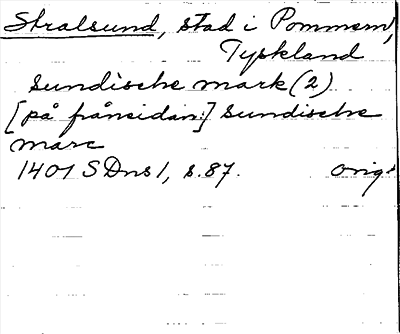 Stralsund, stad i Pommern,
Tyskland
sundische mark (2)
[på frånsidan:] sundische
marc
1401 SDns 1, s. 87. orig.